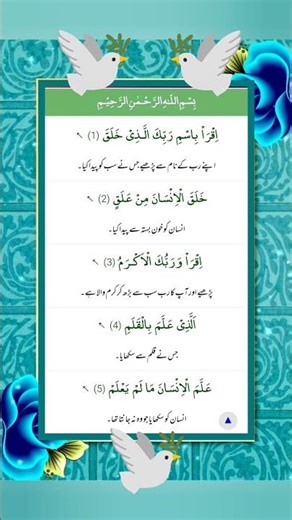 بِسْمِ اللّٰهِ الرَّحْمٰنِ الرَّحِيْمِ
اِقْرَاْ بِاسْمِ رَبِّكَ الَّذِیْ خَلَقَ (1)
اپنے رب کے نام سے پڑھیے جس نے سب کو پیدا کیا۔
خَلَقَ الْاِنْسَانَ مِنْ عَلَقٍ (2)
انسان کو خون بستہ سے پیدا کیا۔
اِقْرَاْ وَرَبُّكَ الْاَكْـرَمُ (3)
پڑھیے اور آپ کا رب سب سے بڑھ کر کرم والا ہے۔
اَلَّذِیْ عَلَّمَ بِالْقَلَمِ (4)
جس نے قلم سے سکھایا۔
عَلَّمَ الْاِنْسَانَ مَا لَمْ يَعْلَمْ (5)
انسان کو سکھایا جو وہ نہ جانتا تھا۔